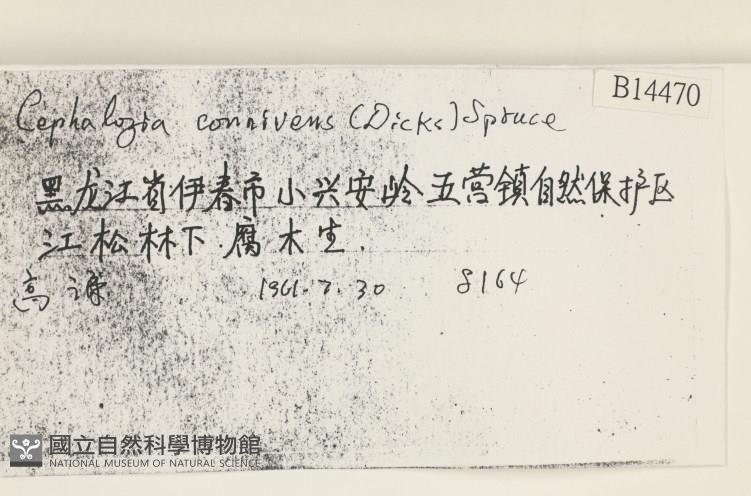 B14470
Cephalozia connivens (Dicks) Spruce
黑龙江省伊春市小兴安岭五营镇自然保护区
江松林下.腐木生.
高谦 1961.7.30 8164
國立自然科學博物館
NATIONAL MUSEUM OF NATURAL SCIENCE